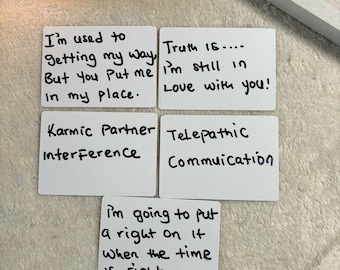 I'm used to
getting my way,
But you put me
in my place.
Truth is....
i'm still in
Love with you!
Karmic Partner
interference
Telepathic
Commuication
i'm going to put
a right on it
when the time
is right